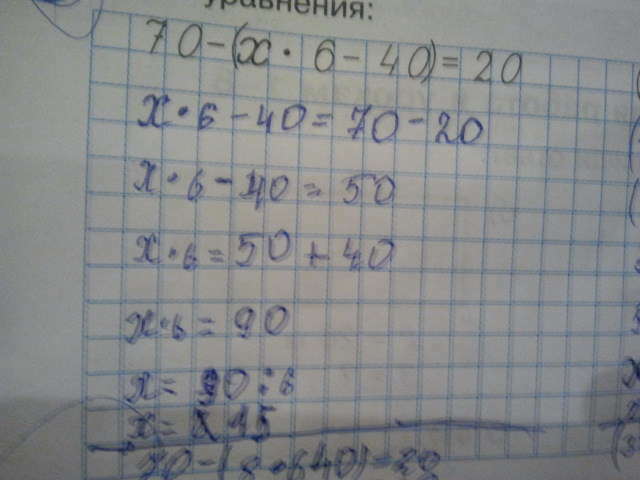 уравнения:
70-(x·6-40)=20
x·6-40=70-20
x·6-40=50
x·6=50+40
x·6=90
x=90:6
x=15